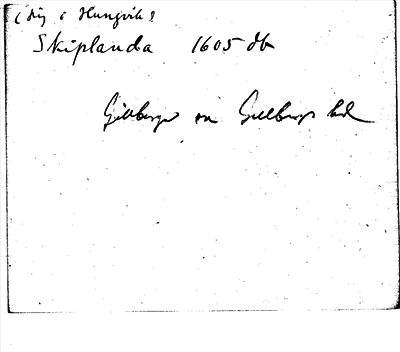 ( i Hungvik?
Skiplanda 1605 Jb
Gillberga sn Gillbergs hd